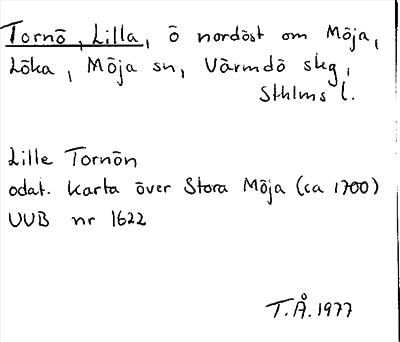 Tornö, Lilla, ö nordöst om Möja,
Löka, Möja sn, Värmdö skg,
Sthlms l.
Lille Tornön
odat. Karta över Stora Möja (ca 1700)
UUB nr 1622
T.Å. 1977